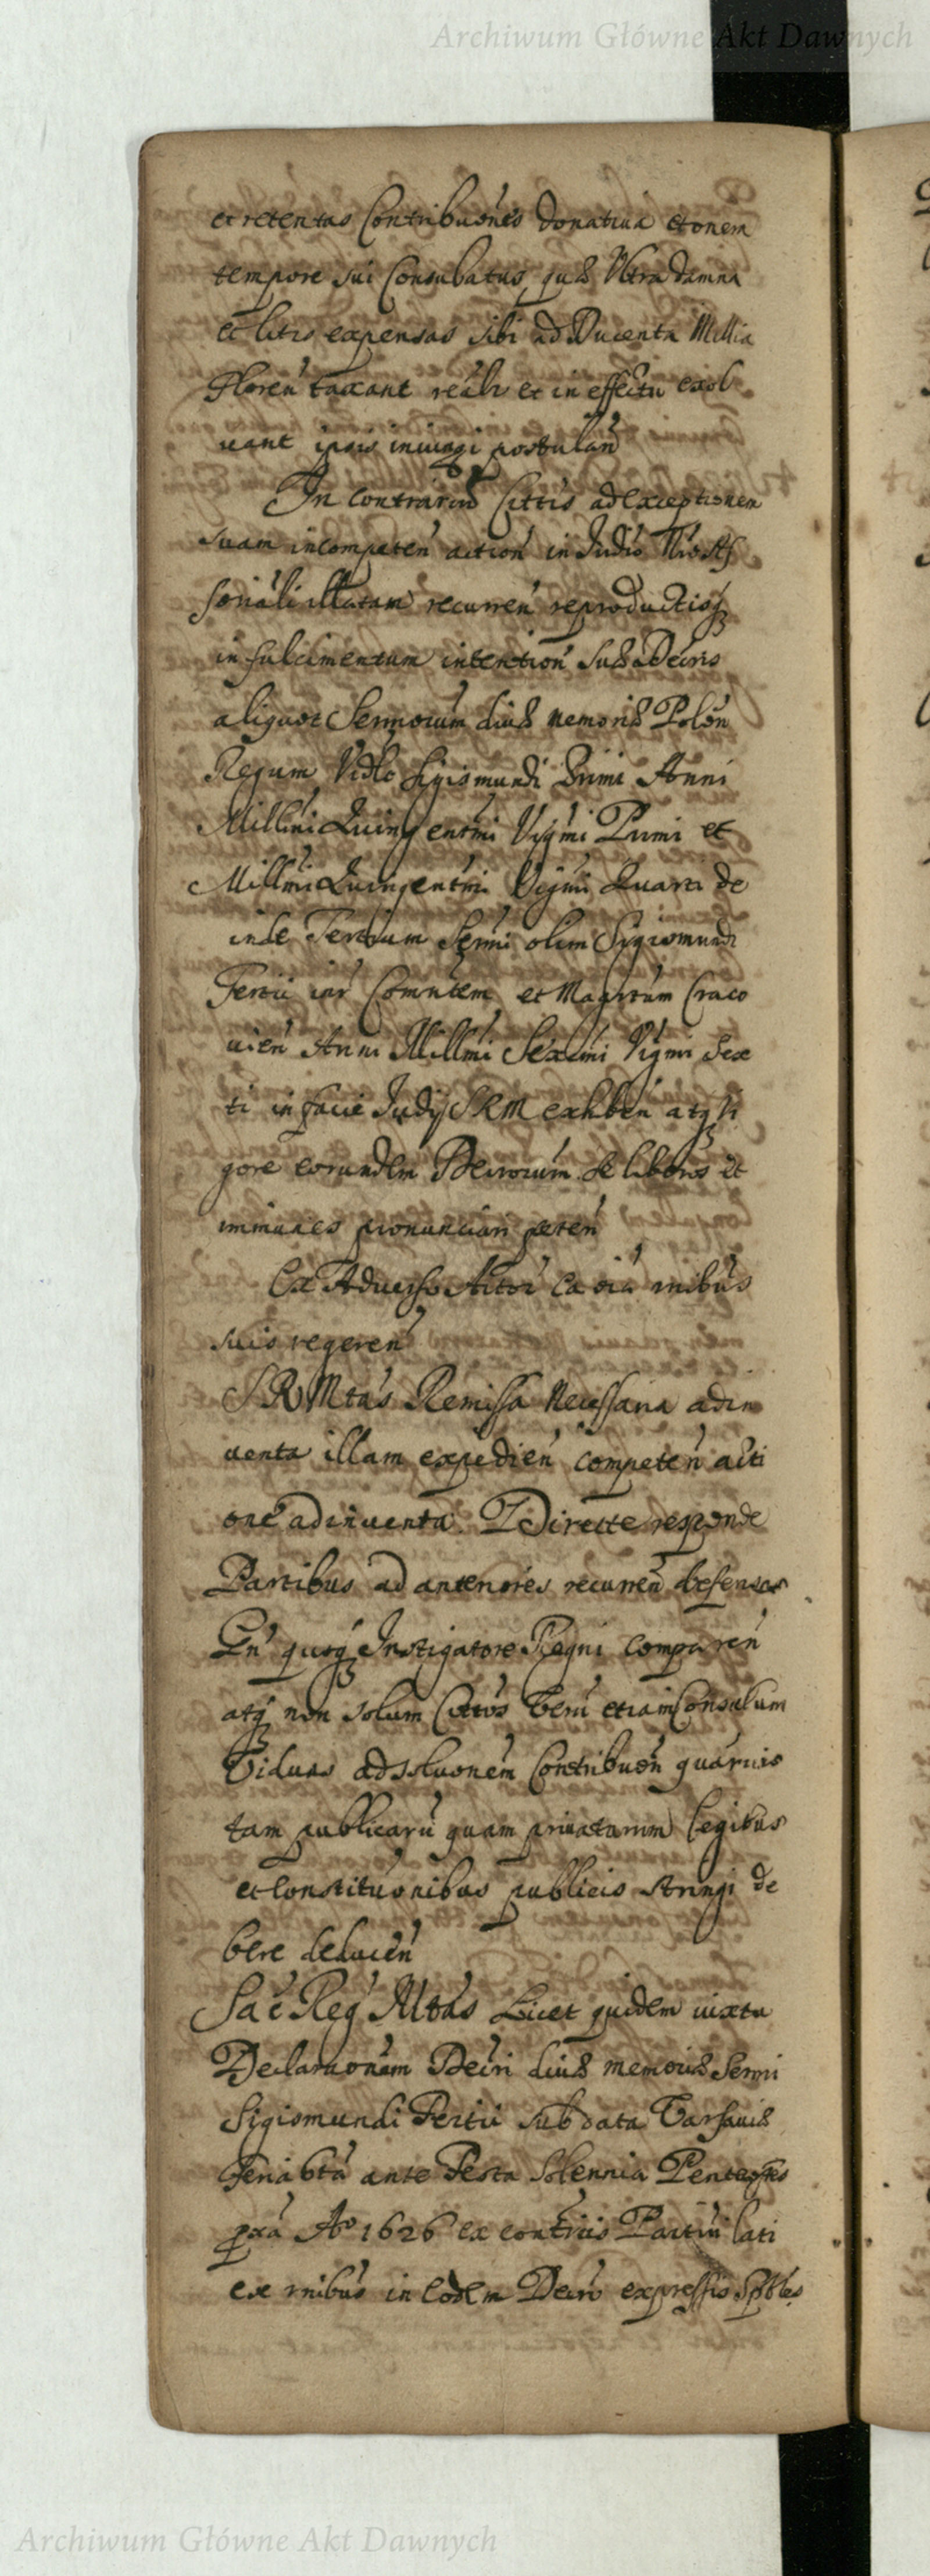 Archiwum Główne Akt Dawnych
et retentas Contribuones donativa et onem
tempore sui Consulatus, quae Ultra damna
et litis expensas sibi ad Ducenta Millia
Floren taxant realr et in effectu exol
uant ipsis iniungi postulan
In contrarium Cittis ad exceptionem
suam incompeten action in Judio
soriali illatam recurren reproductisq
in fulcimentum intention suae Decris
aliquot Sermorum divae memoriae Polon
Regum Vidlo Sigismundi Primi Anni
Millmi Quingentmi Vigmi Primi et
Millmi Quingentmi Vigmi Quarti de
inde Tertium Sermi olim Sigismundi
Tertii inr Comntem et Magrtum Craco
vien Anni Millmi Sexcmi Vigmi Sex
ti in facie Judij SRM exhiben atq vi
gore eorundem Decrorum se liberos et
immunes pronunciari peten
Ex Adverso Actor ex oia rnibus
suis regeren
SRMtas Remissa Necessaria adin
venta illam expedien competen acti
one adinventa. Directe responde
Partibus ad anteriores recurren defensas
Gn quoq Instigatore Regni comparen
atq non solum Cittos Veru etiam Consulum
Viduas ad soluonem Contribuon quarvis
tam publicaru quam privatarum legibus
et Constituonibus publicis stringi de
bere deducen
Sac Reg Mtas Licet quidem iuxta
Declaraonem Decri divae memoriae Sermi
Sigismundi Tertii sub data Varsaviae
Feria bta ante Festa Solennia Pentestes
pxa Ao 1626 ex contriis Partiu lati
ex rnibus in eodem Decro expressis Spbles
Archiwum Główne Akt Dawnych